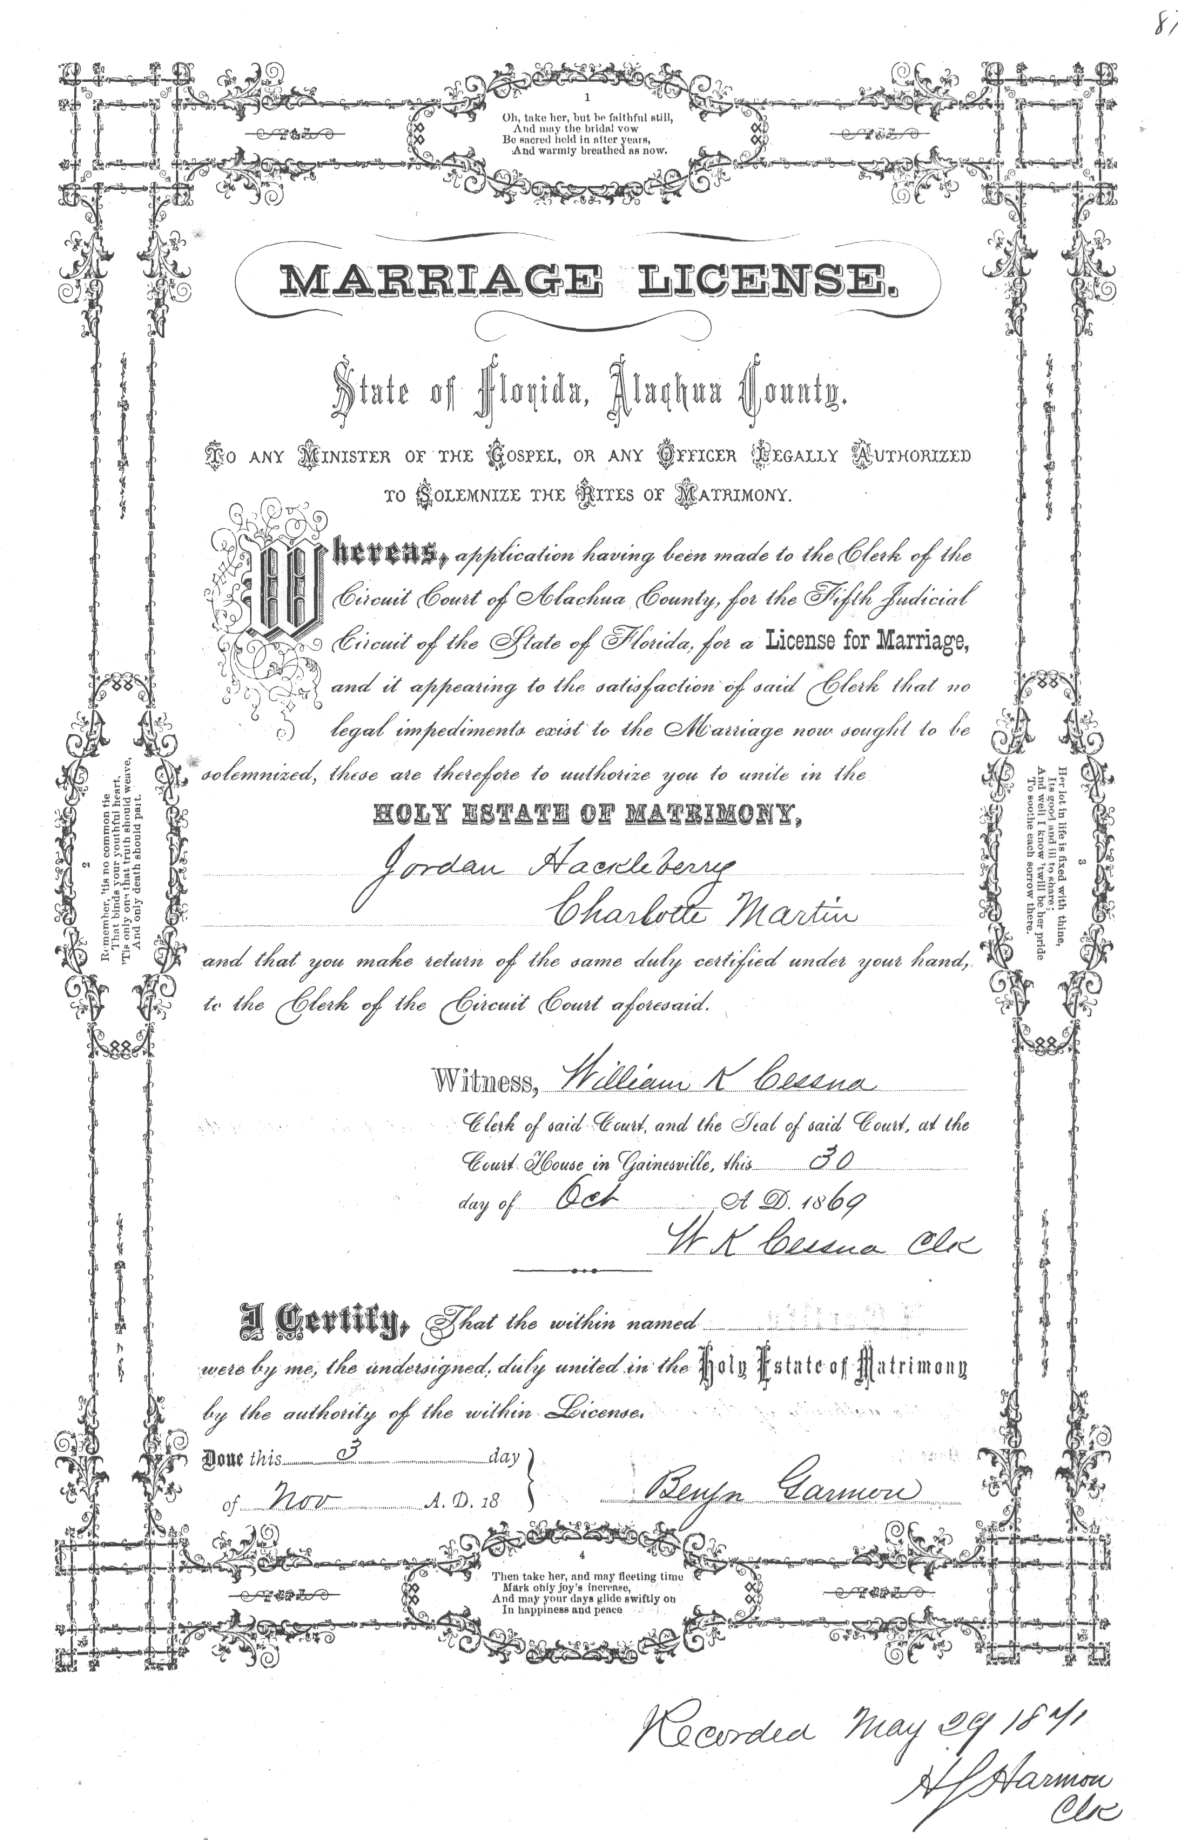 87
1
Oh, take her, but be faithful still,
And may the bridal vow
Be sacred held in after years,
And warmly breathed as now.
MARRIAGE LICENSE.
State of Florida, Alachua County.
TO ANY MINISTER OF THE GOSPEL, OR ANY OFFICER LEGALLY AUTHORIZED
TO SOLEMNIZE THE RITES OF MATRIMONY.
Whereas, application having been made to the Clerk of the
Circuit Court of Alachua County, for the Fifth Judicial
Circuit of the State of Florida, for a License for Marriage,
and it appearing to the satisfaction of said Clerk that no
legal impediments exist to the Marriage now sought to be
solemnized, these are therefore to authorize you to unite in the
HOLY ESTATE OF MATRIMONY,
Jordan Hackleberry
Charlotte Martin
and that you make return of the same duly certified under your hand,
to the Clerk of the Circuit Court aforesaid.
2
Remember, 'tis no common tie
That binds your youthful heart.
'Tis only one that truth should weave,
And only death should part.
3
Her lot in life is fixed with thine,
Its good and ill to share;
And well I know 'twill be her pride
To soothe each sorrow there.
Witness, William K Cessna
Clerk of said Court, and the Seal of said Court, at the
Court House in Gainesville, this 30
day of Oct A D. 1869
W K Cessna Clk
I Certify, That the within named
were by me, the undersigned, duly united in the Holy Estate of Matrimony
by the authority of the within License.
Done this 3 day
of Nov A. D. 18
Benjn Garmon
4
Then take her, and may fleeting time
Mark only joy's increase,
And may your days glide swiftly on
In happiness and peace
Recorded May 29 1871
Harmon
Clk